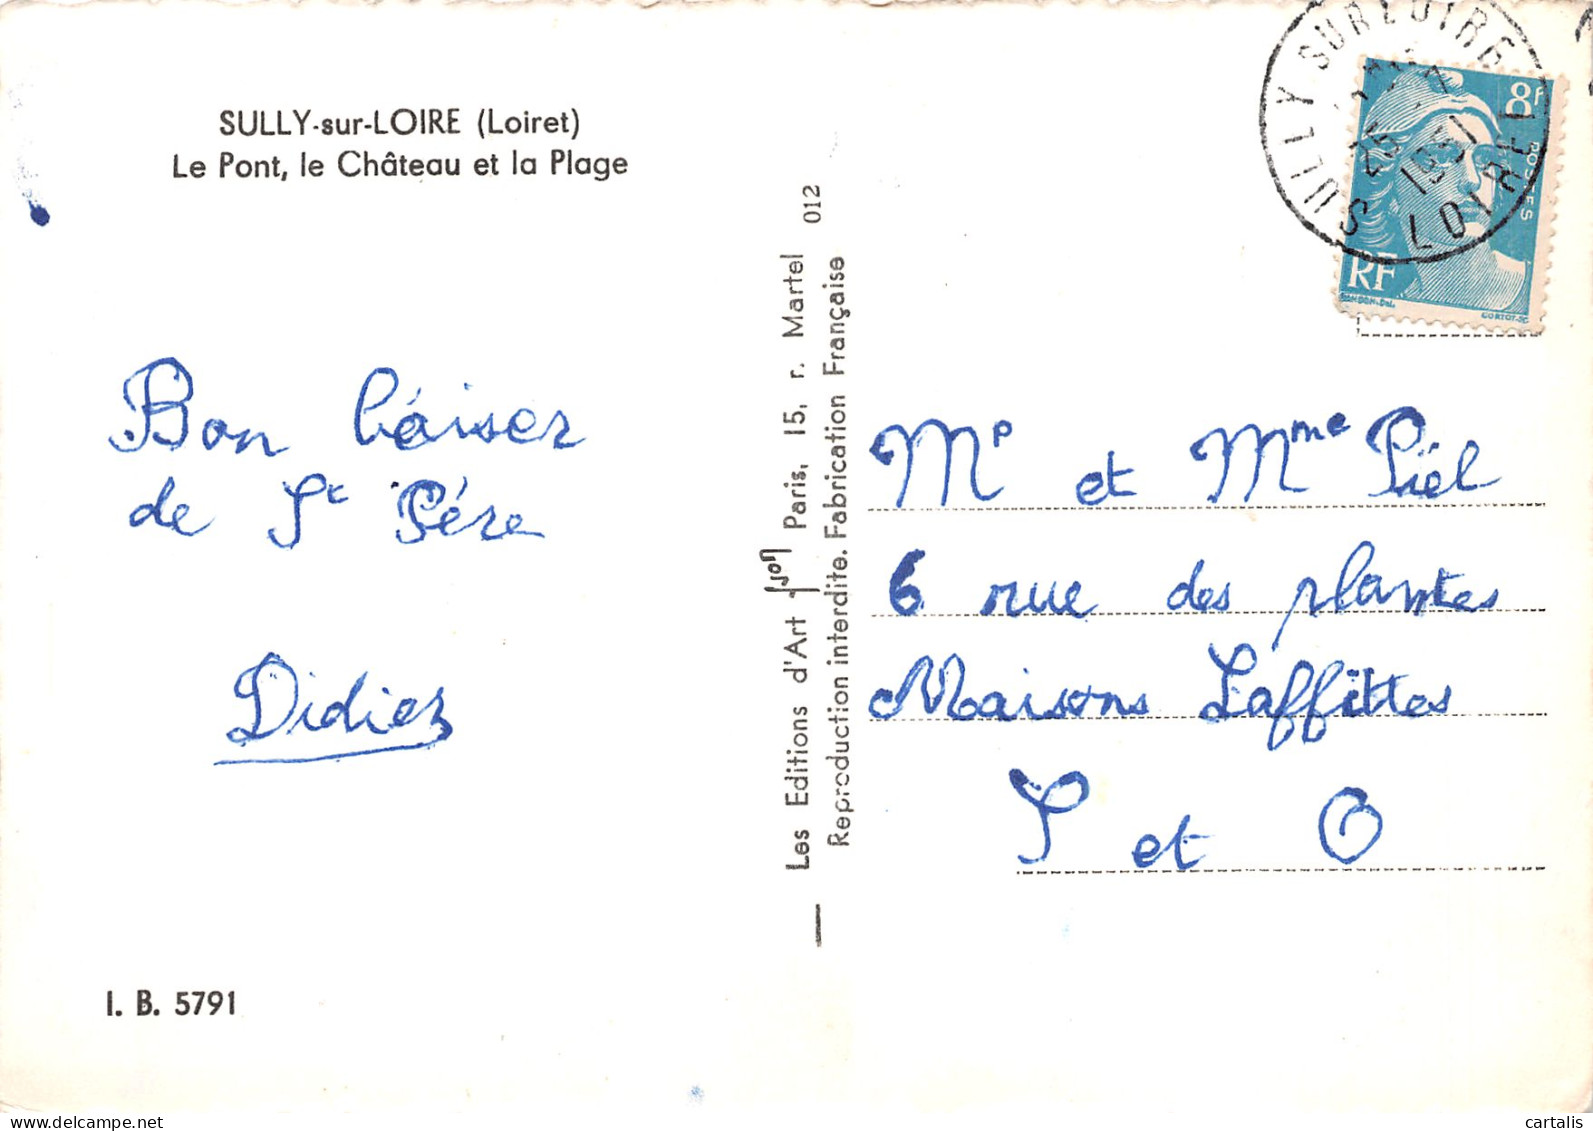 SULLY-sur-LOIRE (Loiret)
Le Pont, le Château et la Plage
Bon baiser
de St Pére
Didier
I. B. 5791
Les Editions d'Art Yvon Paris, 15, r. Martel 012
Reproduction interdite. Fabrication Française
SULLY SUR LOIRE
1951
LOIRET
8f
POSTES
RF
GANDON-DEL.
CORTOT-SC.
Mr et Mme Piel
6 rue des plantes
Maisons Laffittes
S et O
Delcampe.net
cartalis